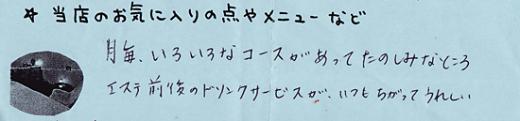 ☆ 当店のお気に入りの点やメニューなど
月毎、いろいろなコースがあってたのしみなところ
エステ前後のドリンクサービスが、いつもちがってうれしい